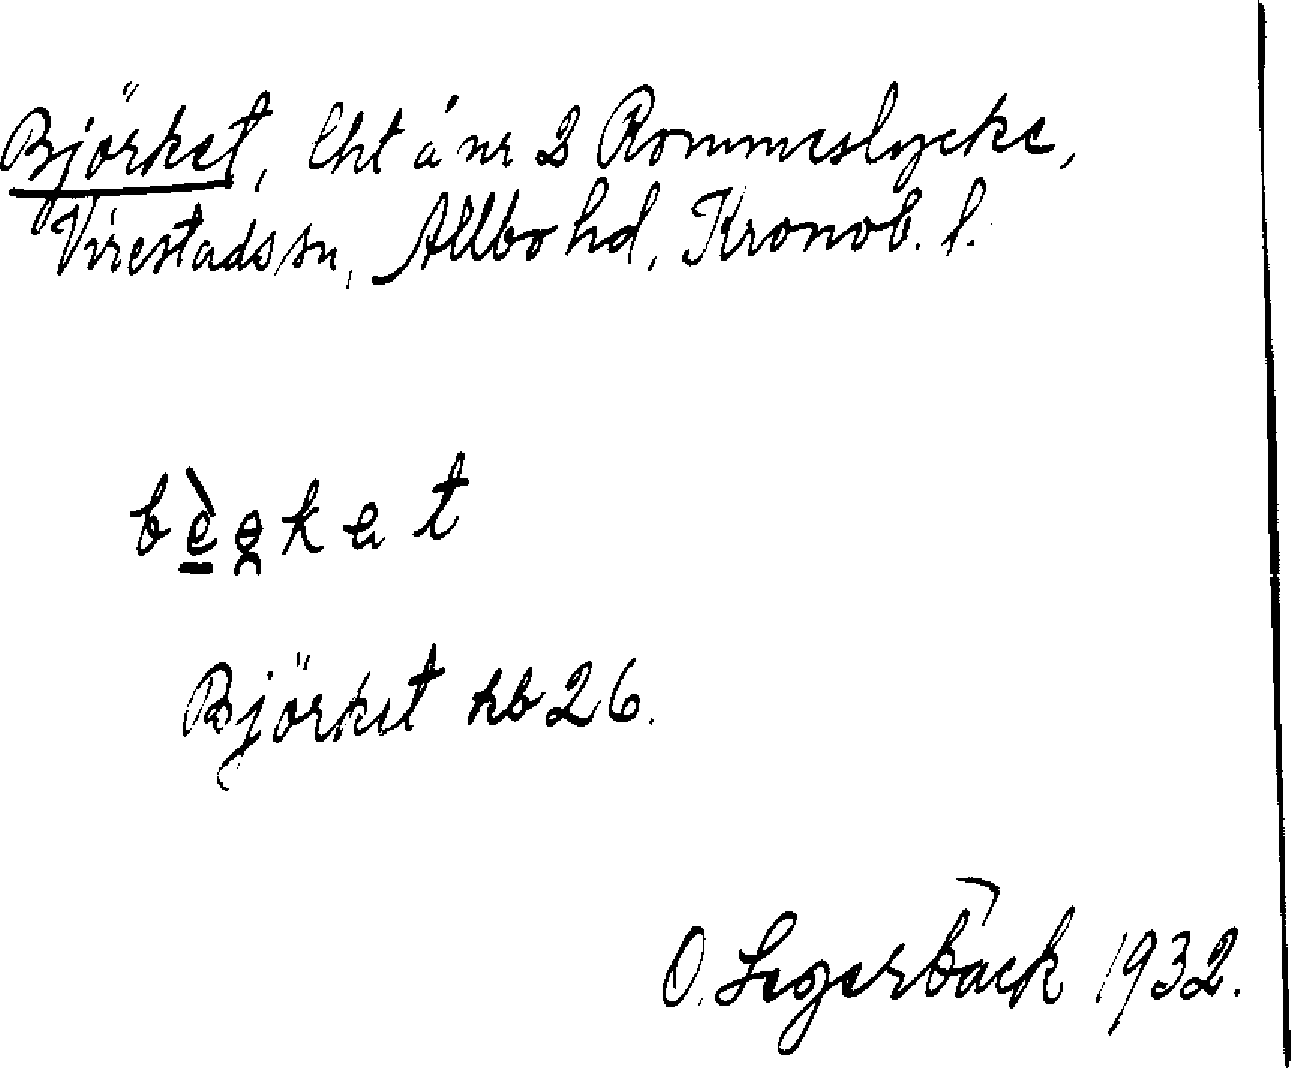 Björket, lht å nr 2 Rommeslycke,
Virestads sn, Allbo hd, Kronob. l.
Björket hb 26.
O. Segerbäck 1932.